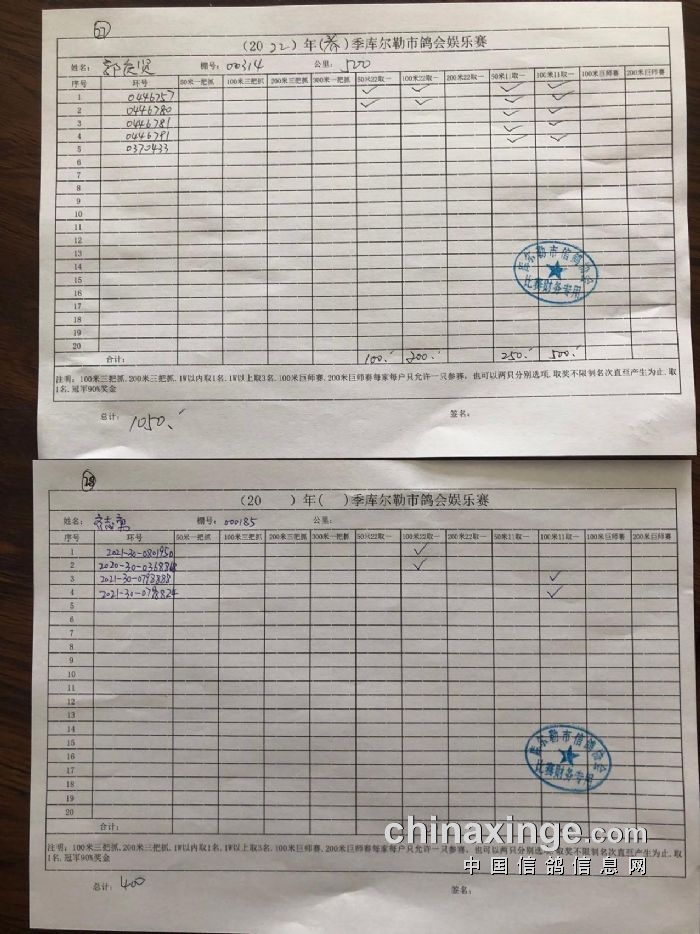 27
(20 22 )年(春)季库尔勒市鸽会娱乐赛
姓名: 郭庆贤 棚号: 00314 公里: 500
序号 环号 50米一把抓 100米三把抓 200米三把抓 300米一把抓 50米22取一 100米22取一 200米22取一 50米11取一 100米11取一 100米巨师赛 200米巨师赛
1 0446757 ✓ ✓ ✓ ✓
2 0446780 ✓ ✓ ✓ ✓
3 0446781 ✓ ✓
4 0446791 ✓ ✓
5 0370433 ✓ ✓
6
7
8
9
10
11
12
13
14
15
16
17
18
19
20
库尔勒市信鸽协会
比赛财务专用
合计: 100. 200. 250. 500.
注明: 100米三把抓.200米三把抓.1W以内取1名.1W以上取3名.100米巨师赛.200米巨师赛每家每户只允许一只参赛, 也可以两只分别选项.取奖不限制名次直至产生为止.取
1名.冠军90%奖金
总计: 1050. 签名:
28
(20 )年( )季库尔勒市鸽会娱乐赛
姓名: 棚号: 000185 公里:
序号 环号 50米一把抓 100米三把抓 200米三把抓 300米一把抓 50米22取一 100米22取一 200米22取一 50米11取一 100米11取一 100米巨师赛 200米巨师赛
1 2021-30-0801950 ✓
2 2020-30-0368848 ✓
3 2021-30-0798888 ✓
4 2021-30-0798824 ✓
5
6
7
8
9
10
11
12
13
14
15
16
17
18
19
20
库尔勒市信鸽协会
比赛财务专用
合计:
注明: 100米三把抓.200米三把抓.1W以内取1名.1W以上取3名.100米巨师赛.200米巨师赛每家每户只允许一只参赛, 也可以两只分别选项.取奖不限制名次直至产生为止.取
1名.冠军90%奖金
总计: 400 签名:
chinaxinge.com
中国信鸽信息网